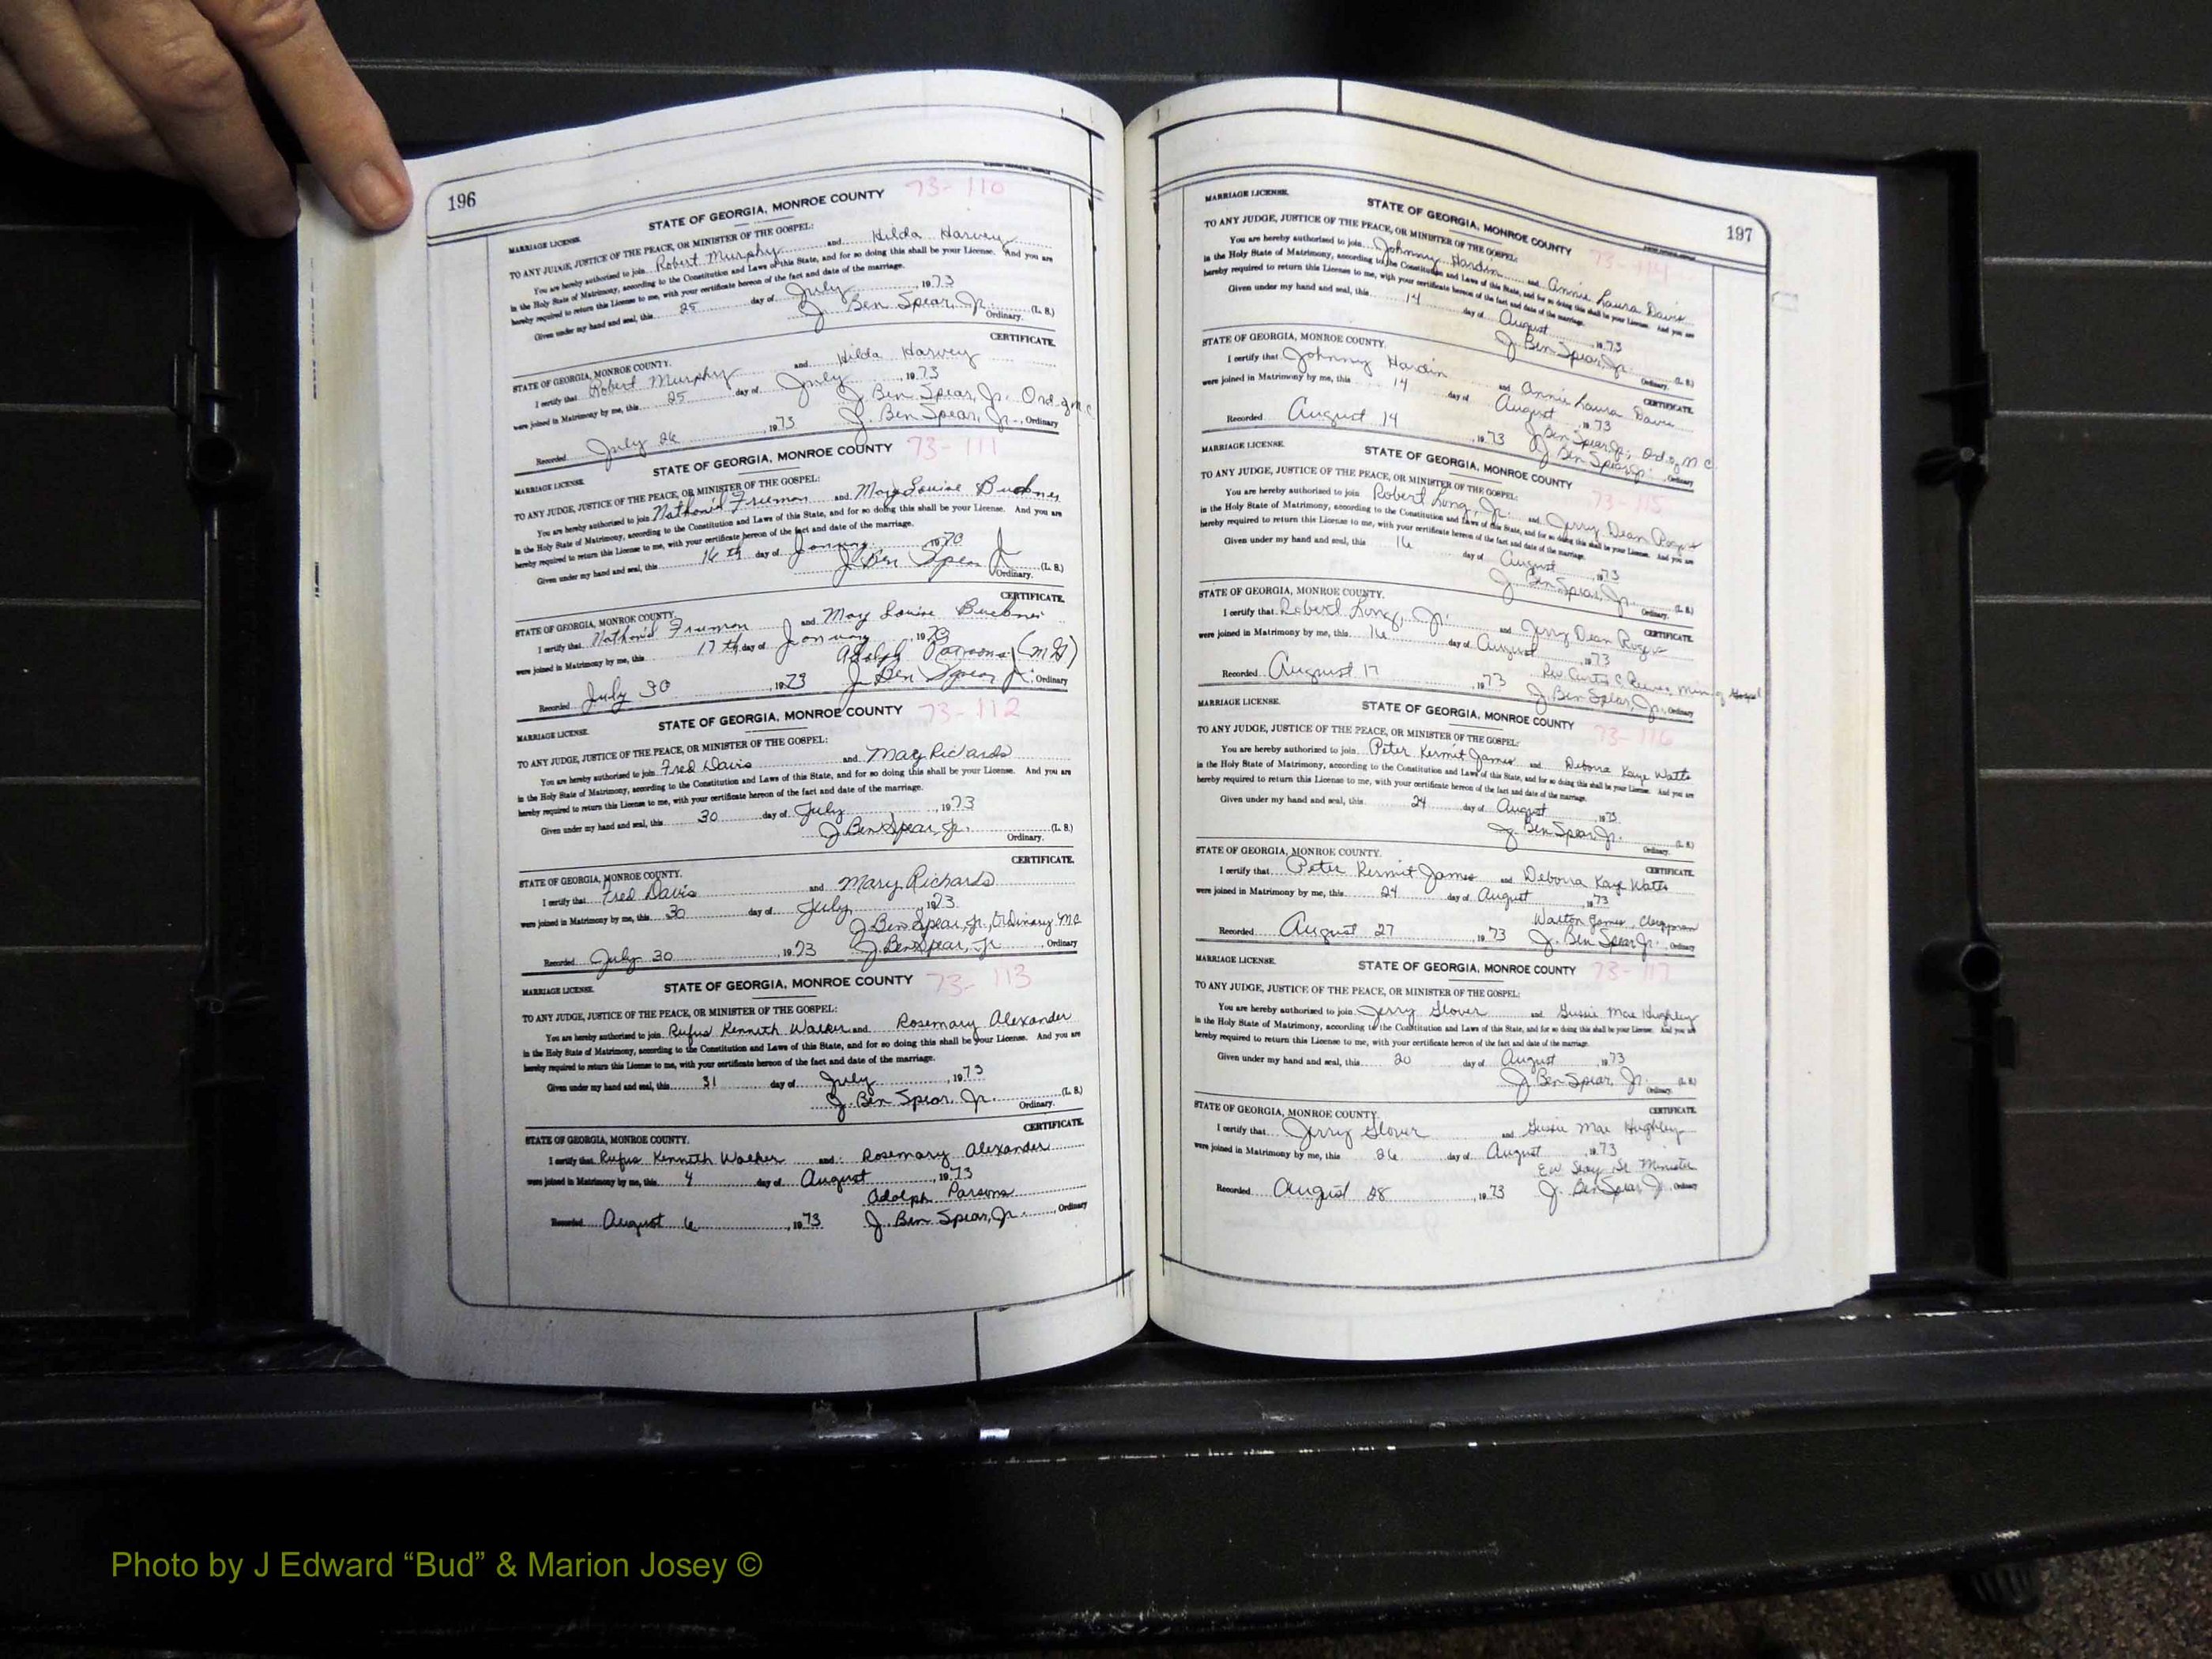 196
STATE OF GEORGIA, MONROE COUNTY 73-110
MARRIAGE LICENSE.
TO ANY JUDGE, JUSTICE OF THE PEACE, OR MINISTER OF THE GOSPEL:
You are hereby authorized to join Robert Murphy and Hilda Harvey
in the Holy State of Matrimony, according to the Constitution and Laws of this State, and for so doing this shall be your License. And you are
hereby required to return this License to me, with your certificate hereon of the fact and date of the marriage.
Given under my hand and seal, this 25 day of July, 1973
J. Ben Spear, Jr. (L. S.)
Ordinary.
CERTIFICATE.
STATE OF GEORGIA, MONROE COUNTY.
I certify that Robert Murphy and Hilda Harvey
were joined in Matrimony by me, this 25 day of July, 1973
J. Ben Spear, Jr. Ord of M C
Recorded July 26, 1973 J. Ben Spear, Jr., Ordinary
STATE OF GEORGIA, MONROE COUNTY 73-111
MARRIAGE LICENSE.
TO ANY JUDGE, JUSTICE OF THE PEACE, OR MINISTER OF THE GOSPEL:
You are hereby authorized to join Freeman and Louise
in the Holy State of Matrimony, according to the Constitution and Laws of this State, and for so doing this shall be your License. And you are
hereby required to return this License to me, with your certificate hereon of the fact and date of the marriage.
Given under my hand and seal, this 16 th day of January
J. Ben Spear Jr (L. S.)
Ordinary.
CERTIFICATE.
STATE OF GEORGIA, MONROE COUNTY.
I certify that Freeman and Louise
were joined in Matrimony by me, this 17 th day of January
Adolph Parsons (M G)
Recorded July 30, 1973 J. Ben Spear Jr. Ordinary
STATE OF GEORGIA, MONROE COUNTY 73-112
MARRIAGE LICENSE.
TO ANY JUDGE, JUSTICE OF THE PEACE, OR MINISTER OF THE GOSPEL:
You are hereby authorized to join Fred Davis and Mary Richards
in the Holy State of Matrimony, according to the Constitution and Laws of this State, and for so doing this shall be your License. And you are
hereby required to return this License to me, with your certificate hereon of the fact and date of the marriage.
Given under my hand and seal, this 30 day of July, 1973
J. Ben Spear, Jr. (L. S.)
Ordinary.
CERTIFICATE.
STATE OF GEORGIA, MONROE COUNTY.
I certify that Fred Davis and Mary Richards
were joined in Matrimony by me, this 30 day of July, 1973
J. Ben Spear, Jr., Ordinary MC
Recorded July 30, 1973 J. Ben Spear, Jr, Ordinary
STATE OF GEORGIA, MONROE COUNTY 73-113
MARRIAGE LICENSE.
TO ANY JUDGE, JUSTICE OF THE PEACE, OR MINISTER OF THE GOSPEL:
You are hereby authorized to join Rufus Kenneth Walker and Rosemary Alexander
in the Holy State of Matrimony, according to the Constitution and Laws of this State, and for so doing this shall be your License. And you are
hereby required to return this License to me, with your certificate hereon of the fact and date of the marriage.
Given under my hand and seal, this 31 day of July, 1973
J. Ben Spear, Jr. (L. S.)
Ordinary.
CERTIFICATE.
STATE OF GEORGIA, MONROE COUNTY.
I certify that Rufus Kenneth Walker and Rosemary Alexander
were joined in Matrimony by me, this 4 day of August, 1973
Adolph Parsons
Recorded August 6, 1973 J. Ben Spear, Jr., Ordinary
197
MARRIAGE LICENSE. STATE OF GEORGIA, MONROE COUNTY 73-114
TO ANY JUDGE, JUSTICE OF THE PEACE, OR MINISTER OF THE GOSPEL:
You are hereby authorized to join Johnny Hardin and Annie Laura Davis
in the Holy State of Matrimony, according to the Constitution and Laws of this State, and for so doing this shall be your License. And you are
hereby required to return this License to me, with your certificate hereon of the fact and date of the marriage.
Given under my hand and seal, this 14 day of August, 1973
J. Ben Spear, Jr. (L. S.)
Ordinary.
STATE OF GEORGIA, MONROE COUNTY. CERTIFICATE.
I certify that Johnny Hardin and Annie Laura Davis
were joined in Matrimony by me, this 14 day of August, 1973
J. Ben Spear Jr., Ord of M C.
Recorded August 14, 1973 J. Ben Spear Jr., Ordinary
MARRIAGE LICENSE. STATE OF GEORGIA, MONROE COUNTY 73-115
TO ANY JUDGE, JUSTICE OF THE PEACE, OR MINISTER OF THE GOSPEL:
You are hereby authorized to join Robert Long, Jr. and Jerry Dean Rogers
in the Holy State of Matrimony, according to the Constitution and Laws of this State, and for so doing this shall be your License. And you are
hereby required to return this License to me, with your certificate hereon of the fact and date of the marriage.
Given under my hand and seal, this 16 day of August, 1973
J. Ben Spear, Jr. (L. S.)
Ordinary.
STATE OF GEORGIA, MONROE COUNTY. CERTIFICATE.
I certify that Robert Long, Jr. and Jerry Dean Rogers
were joined in Matrimony by me, this 16 day of August, 1973
Rev. Curtis C. Min of
Recorded August 17, 1973 J. Ben Spear, Jr., Ordinary
MARRIAGE LICENSE. STATE OF GEORGIA, MONROE COUNTY 73-116
TO ANY JUDGE, JUSTICE OF THE PEACE, OR MINISTER OF THE GOSPEL:
You are hereby authorized to join Peter Kermit James and Deborra Kaye Watts
in the Holy State of Matrimony, according to the Constitution and Laws of this State, and for so doing this shall be your License. And you are
hereby required to return this License to me, with your certificate hereon of the fact and date of the marriage.
Given under my hand and seal, this 24 day of August, 1973
J. Ben Spear Jr. (L. S.)
Ordinary.
STATE OF GEORGIA, MONROE COUNTY. CERTIFICATE.
I certify that Peter Kermit James and Deborra Kaye Watts
were joined in Matrimony by me, this 24 day of August, 1973
Walton James, Clergyman
Recorded August 27, 1973 J. Ben Spear Jr., Ordinary
MARRIAGE LICENSE. STATE OF GEORGIA, MONROE COUNTY 73-117
TO ANY JUDGE, JUSTICE OF THE PEACE, OR MINISTER OF THE GOSPEL:
You are hereby authorized to join Jerry Glover and Gussie Mae Hughley
in the Holy State of Matrimony, according to the Constitution and Laws of this State, and for so doing this shall be your License. And you are
hereby required to return this License to me, with your certificate hereon of the fact and date of the marriage.
Given under my hand and seal, this 20 day of August, 1973
J. Ben Spear, Jr. (L. S.)
Ordinary.
STATE OF GEORGIA, MONROE COUNTY. CERTIFICATE.
I certify that Jerry Glover and Gussie Mae Hughley
were joined in Matrimony by me, this 26 day of August, 1973
Sr. Minister
Recorded August 28, 1973 J. Ben Spear, Jr., Ordinary
Photo by J Edward “Bud” & Marion Josey ©